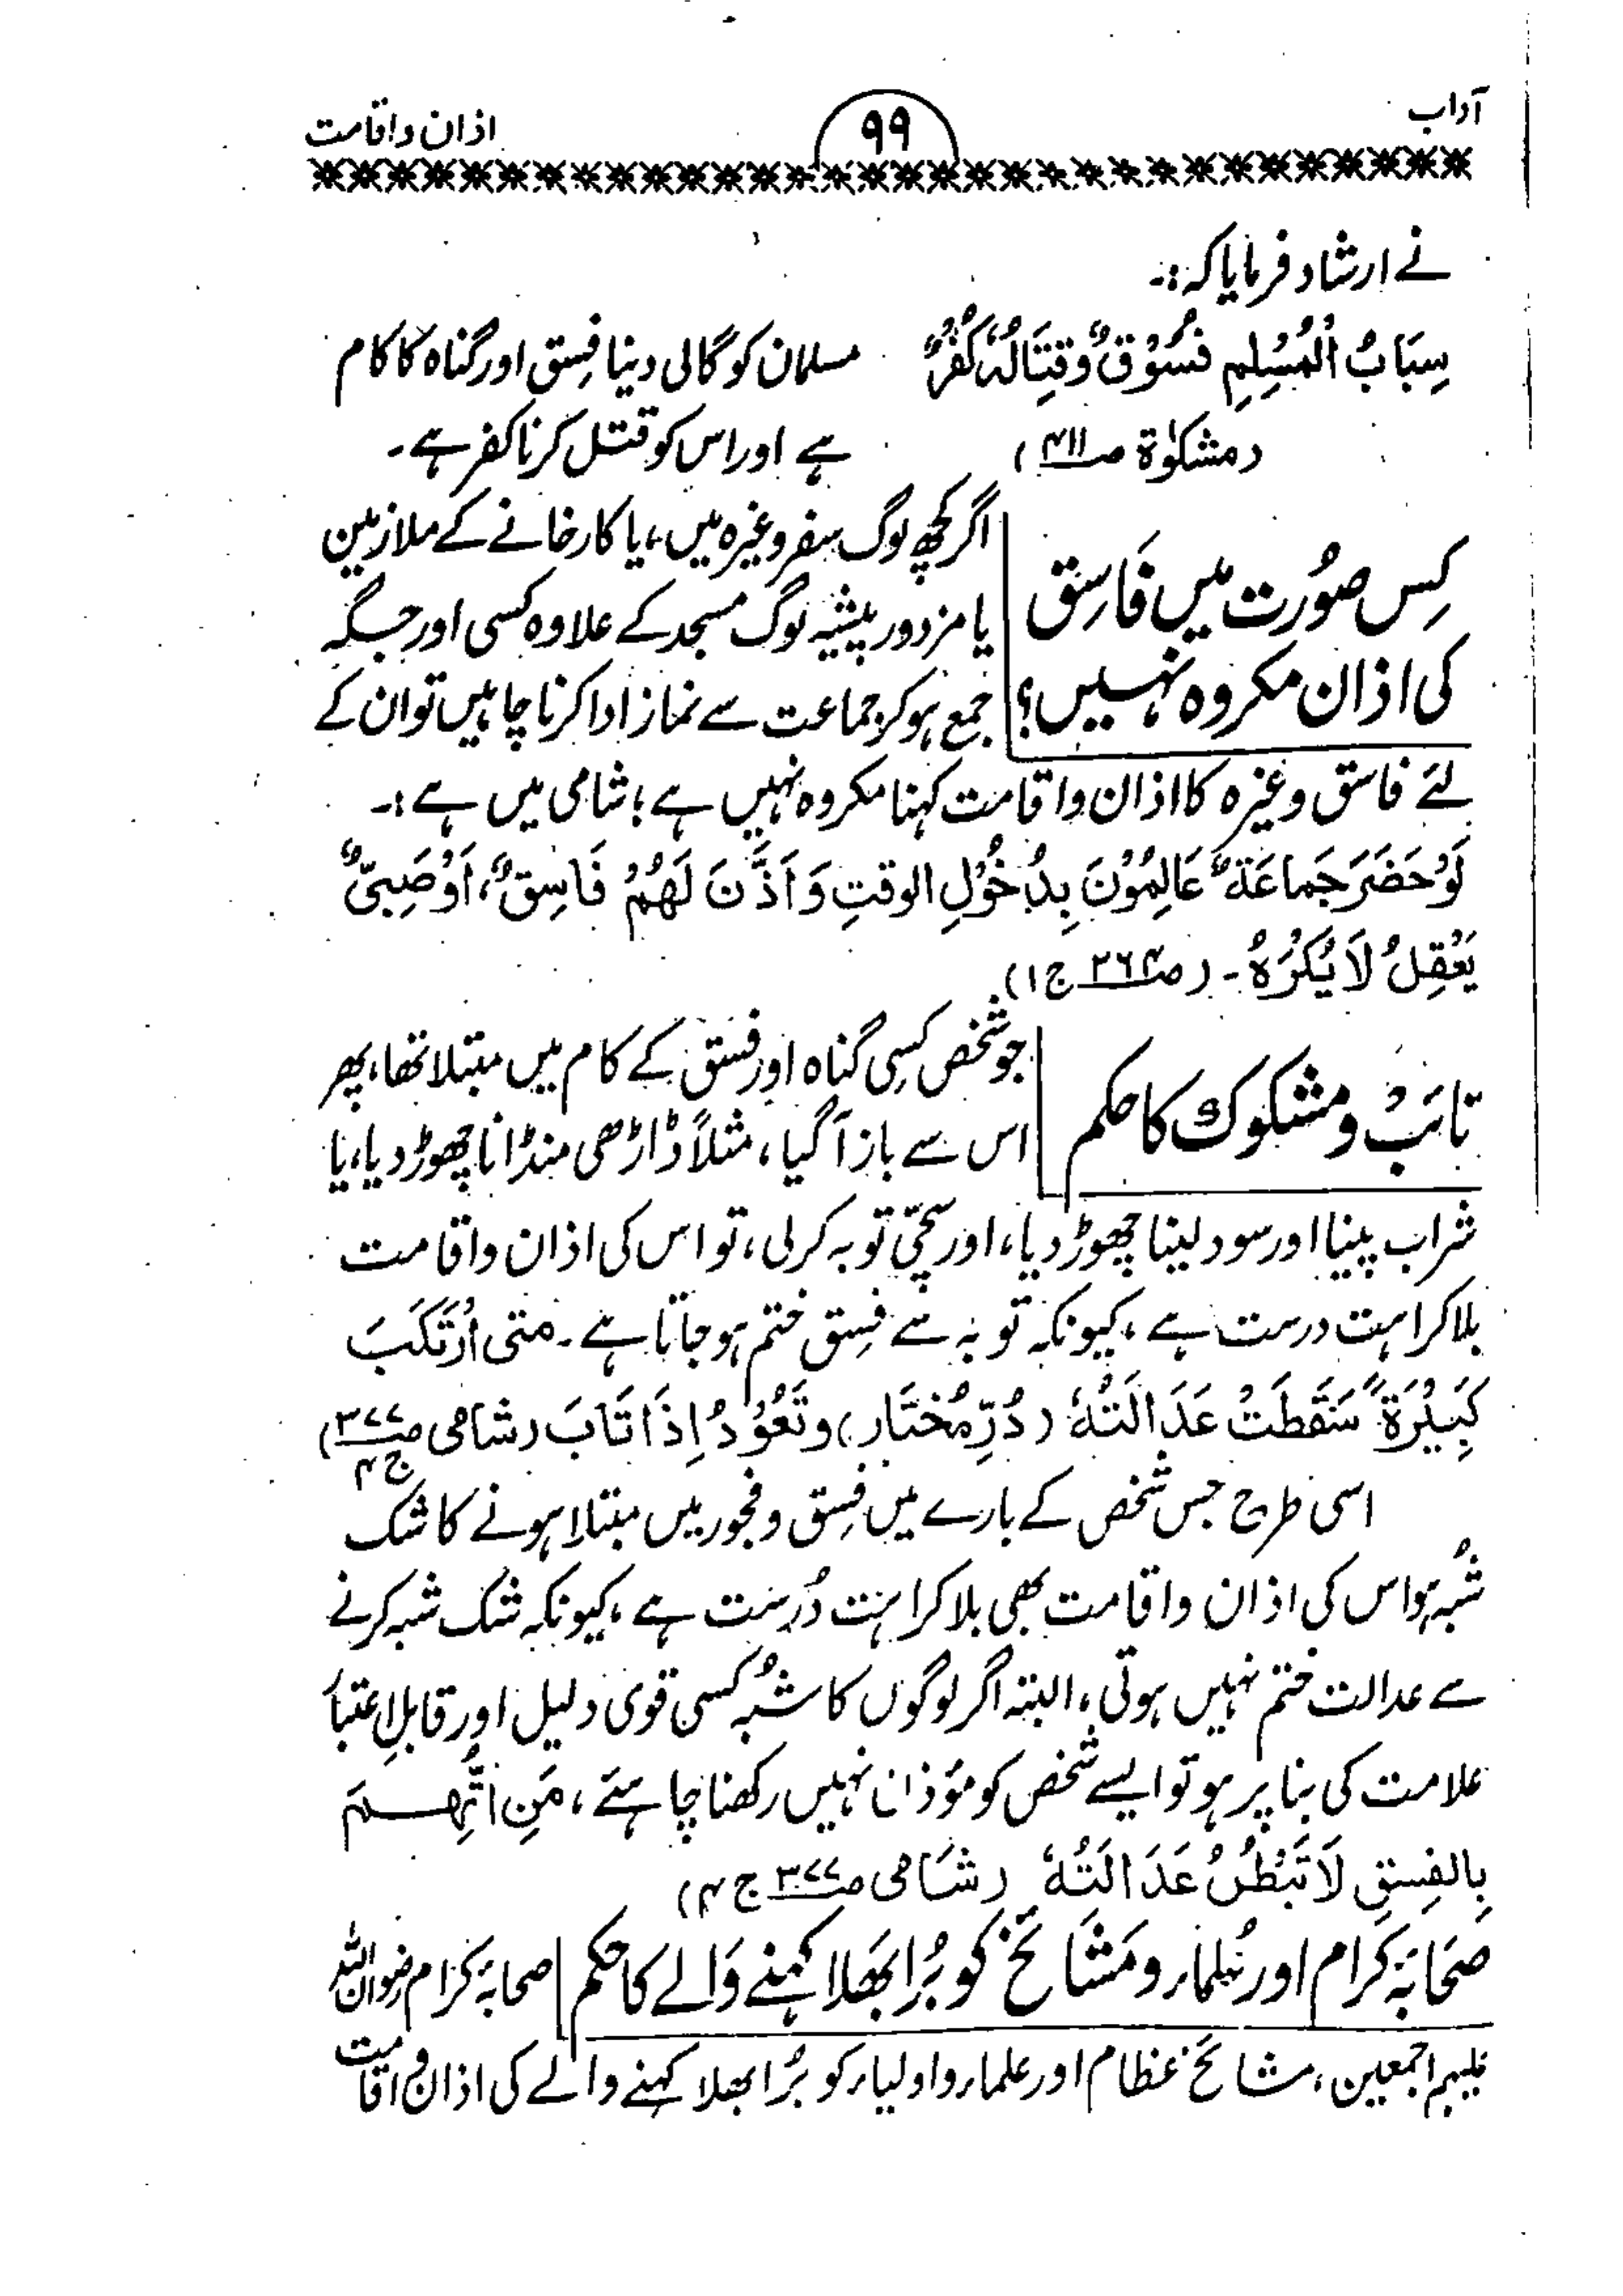 آداب
۹۹
اذان واقامت
نے ارشاد فرمایا کہ:۔
سِبَابُ الْمُسْلِمِ فُسُوْقٌ وَقِتَالُہٗ کُفْرٌ
(مشکوٰۃ صـ۴۱۱)
مسلمان کو گالی دینا فِسق اور گناہ کا کام
ہے اور اس کو قتل کرنا کفر ہے۔
کِس صُورت میں فَاسِق
کی اذان مکروہ نہیں؟
اگر کچھ لوگ سفر وغیرہ میں، یا کارخانے کے ملازمین
یا مزدور پیشہ لوگ مسجد کے علاوہ کسی اور جگہ
جمع ہو کر جماعت سے نماز ادا کرنا چاہیں تو ان کے
لئے فاسق وغیرہ کا اذان واقامت کہنا مکروہ نہیں ہے؛ شامی میں ہے:۔
لَوْ حَضَرَ جَماعَۃٌ عَالِمُوْنَ بِدُخُوْلِ الوقتِ وَاَذَّنَ لَھُمْ فَاسِقٌ، اَوْ صَبِیٌّ
یَعْقِلُ لَا یُکْرَہُ ۔ (صـ۲۶۴ ج۱)
تائبْ و مشکوک کا حکم
جو شخص کسِی گناہ اور فسق کے کام میں مبتلا تھا، پھر
اس سے باز آگیا، مثلاً ڈاڑھی منڈانا چھوڑ دیا، یا
شراب پینا اور سود لینا چھوڑ دیا، اور سچّی توبہ کرلی، تو اس کی اذان واقامت
بلا کراہت درست ہے، کیونکہ توبہ سے فِسق ختم ہو جاتا ہے۔ متی اُرْتَکَبَ
کَبِیْرَۃً سَقَطَتْ عَدَالَتُہٗ (دُرِّمُختَار) وتَعُوْدُ اِذَا تَابَ (شامی صـ۳۷۷ ج۴)
اسی طرح جس شخص کے بارے میں فِسق و فجور میں مبتلا ہونے کا شک
شُبہ ہو اس کی اذان واقامت بھی بلا کراہت دُرست ہے، کیونکہ شک شبہ کرنے
سے عدالت ختم نہیں ہوتی، البتہ اگر لوگوں کا شُبہ کسی قوی دلیل اور قابلِ اعتبار
علامت کی بنا پر ہو تو ایسے شخص کو مؤذن نہیں رکھنا چاہئے، مَنِ اتُّھِمَ
بِالفِسقِ لَا تَبْطُلُ عَدَالَتُہٗ (شَامی صـ۳۷۷ ج۴)
صَحَابۂ کرام اور عُلماء و مَشَائخ کو بُرا بَھَلا کہنے وَالے کا حکم
صحابۂ کرام رضوان اللہ
علیہم اجمعین، مشائخ عظام اور علماء و اولیاء کو بُرا بھلا کہنے والے کی اذان واقامت